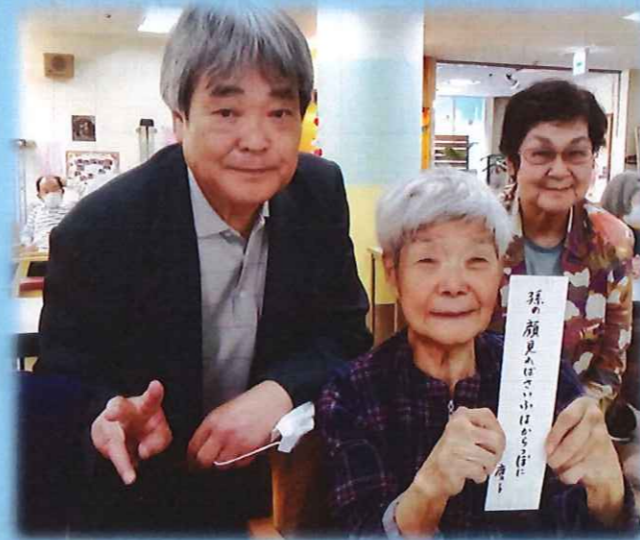 孫の顔見ればさいふはからっぽに